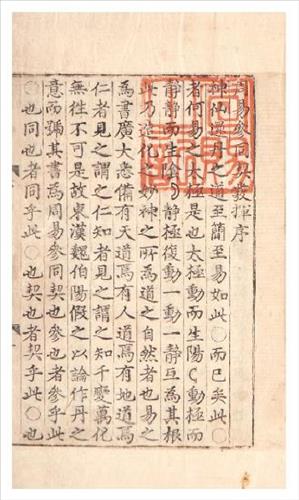 周易參同契發揮序
神仙還丹之道至簡至易如此〇而已矣此〇
者何易之太極是也太極動而生陽動而
靜靜而生陰靜極復動一動一靜互為其根
此乃造化之妙神之所為道之自然者也易之
為書廣大悉備有天道焉有人道焉有地道焉
仁者見之謂之仁知者見之謂之知千變萬化
無徃不可是故東漢魏伯陽假之以論作丹之
意而號其書為周易參同契參也者參乎此
〇也同也者同乎此〇也契也者契乎此〇也